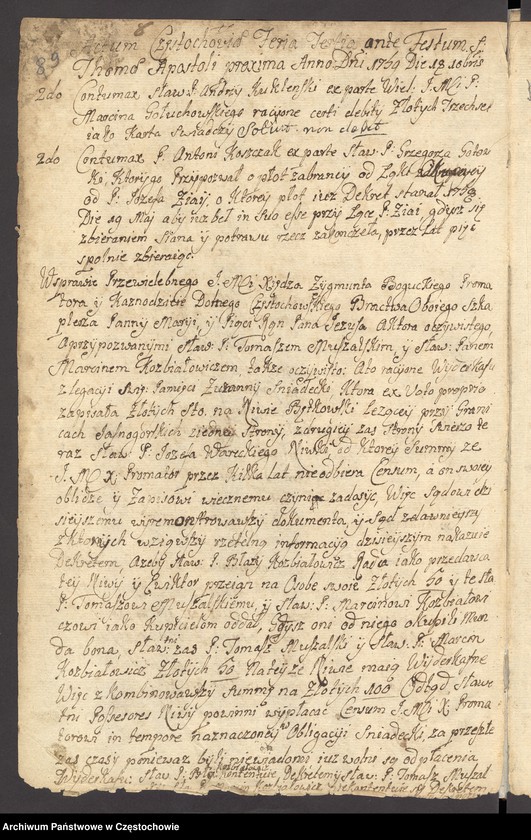 89
8
Actum Częstochoviæ Feria Tertia ante Festum S.
Thomæ Apostoli proxima Anno Dni 1769 Die 18 10bris
2do Contumax Sław: P. Andrzy Kuklenski ex parte Wiel: J: Mci P:
Marcina Głuchowskiego racione certi debiti Złotych Trzechset
iako Karta Swiadczy Solut. non debit
2do Contumax P. Antoni Koszczak ex parte Sław: P: Grzegorza
Ki, Ktorego Przypozwał o płot zabrancy od
od P: Jozefa Ziaiy, o Ktorey płot iuz Dekret stanał 1769
Die 29 Maj aby na beł in suo esse przy Łące P: Ziai, gdysz się
zbieraniem Siana y potrawu rzecz zakonczeła, przez Lat pięć
spolnie zbieraiąc.
W sprawie Przewielebnego J: Mci Xiędza Zygmunta Boguckiego Promo
tora y Kaznodzieie Domego Częstochowskiego Bractwa Oboiego Szka
plerza Panny Maryi, y Pięci Ran Pana Jezusa Aktora oczywistego,
A przypozwanymi Sław: P: Tomaszem Muszalskim, y Sław: Panem
Marcinem Kozbiałowiczem, także oczywisto: Ato racyone Wyderkafu
z legacyi Ś: Pamięci Zuzanny Sniadecki Ktora ex Voto proprio
zapisała Złotych Sto. na Niwie Bętkowski Lezącey przy Grani
cach Jasnogorskich ziedney strony, zdrugiey zas strony
raz Sław: P: Jozefa Wareckiego Niwka od Ktorey Summy ze
J: M X: Promotor przez Kilka Lat nie odbiera Censum, a on swoiey
oblidze y Zapisowi wiecznemu czyniąc zadosyć, Więc Sądowi dzi
sieyszemu wyremonstrowawszy dokumenta, y Sąd zdawnieyszy
z Ktorych wziąwszy rzetelną informacyą dzisieyszym nakazuie
Dekretem, Azeby Sław: P. Błazy Kozbiałowicz Rayca iako przedawca
tey Niwy y Ewiktor przeiął na Osobe swoie Złotych 50 y te sta
P: Tomaszowi Muszalskiemu, y Sław: P: Marcinowi Kozbiałowi
czowi iako Kupicielom oddał, Gdysz oni od niego Kupili Mun
da bona, Sławetni zas P: Tomasz Muszalski y Sław: P: Marcin
Kozbiałowicz Złotych 50. Nateyże Niwie maią Wyderkafne
Więc z Kombinowawszy Summy na Złotych 100 Odtąd Sławe
tni Possesores Niwy powinni wypłacać Censum J: Mci X: Promo
torowi in tempore naznaczoney w Obligacyi Sniadecki, za przeszłe
zas czasy poniewaz byli niewiadomi iuz wolni są od płacenia
Wyderkafu: Sław: P: Błazy Kozbiałowicz Kontentuie Dekretem, y Sław: P: Tomasz Muszal
Archiwum Państwowe w Częstochowie
Archiwum Państwowe w Częstochowie